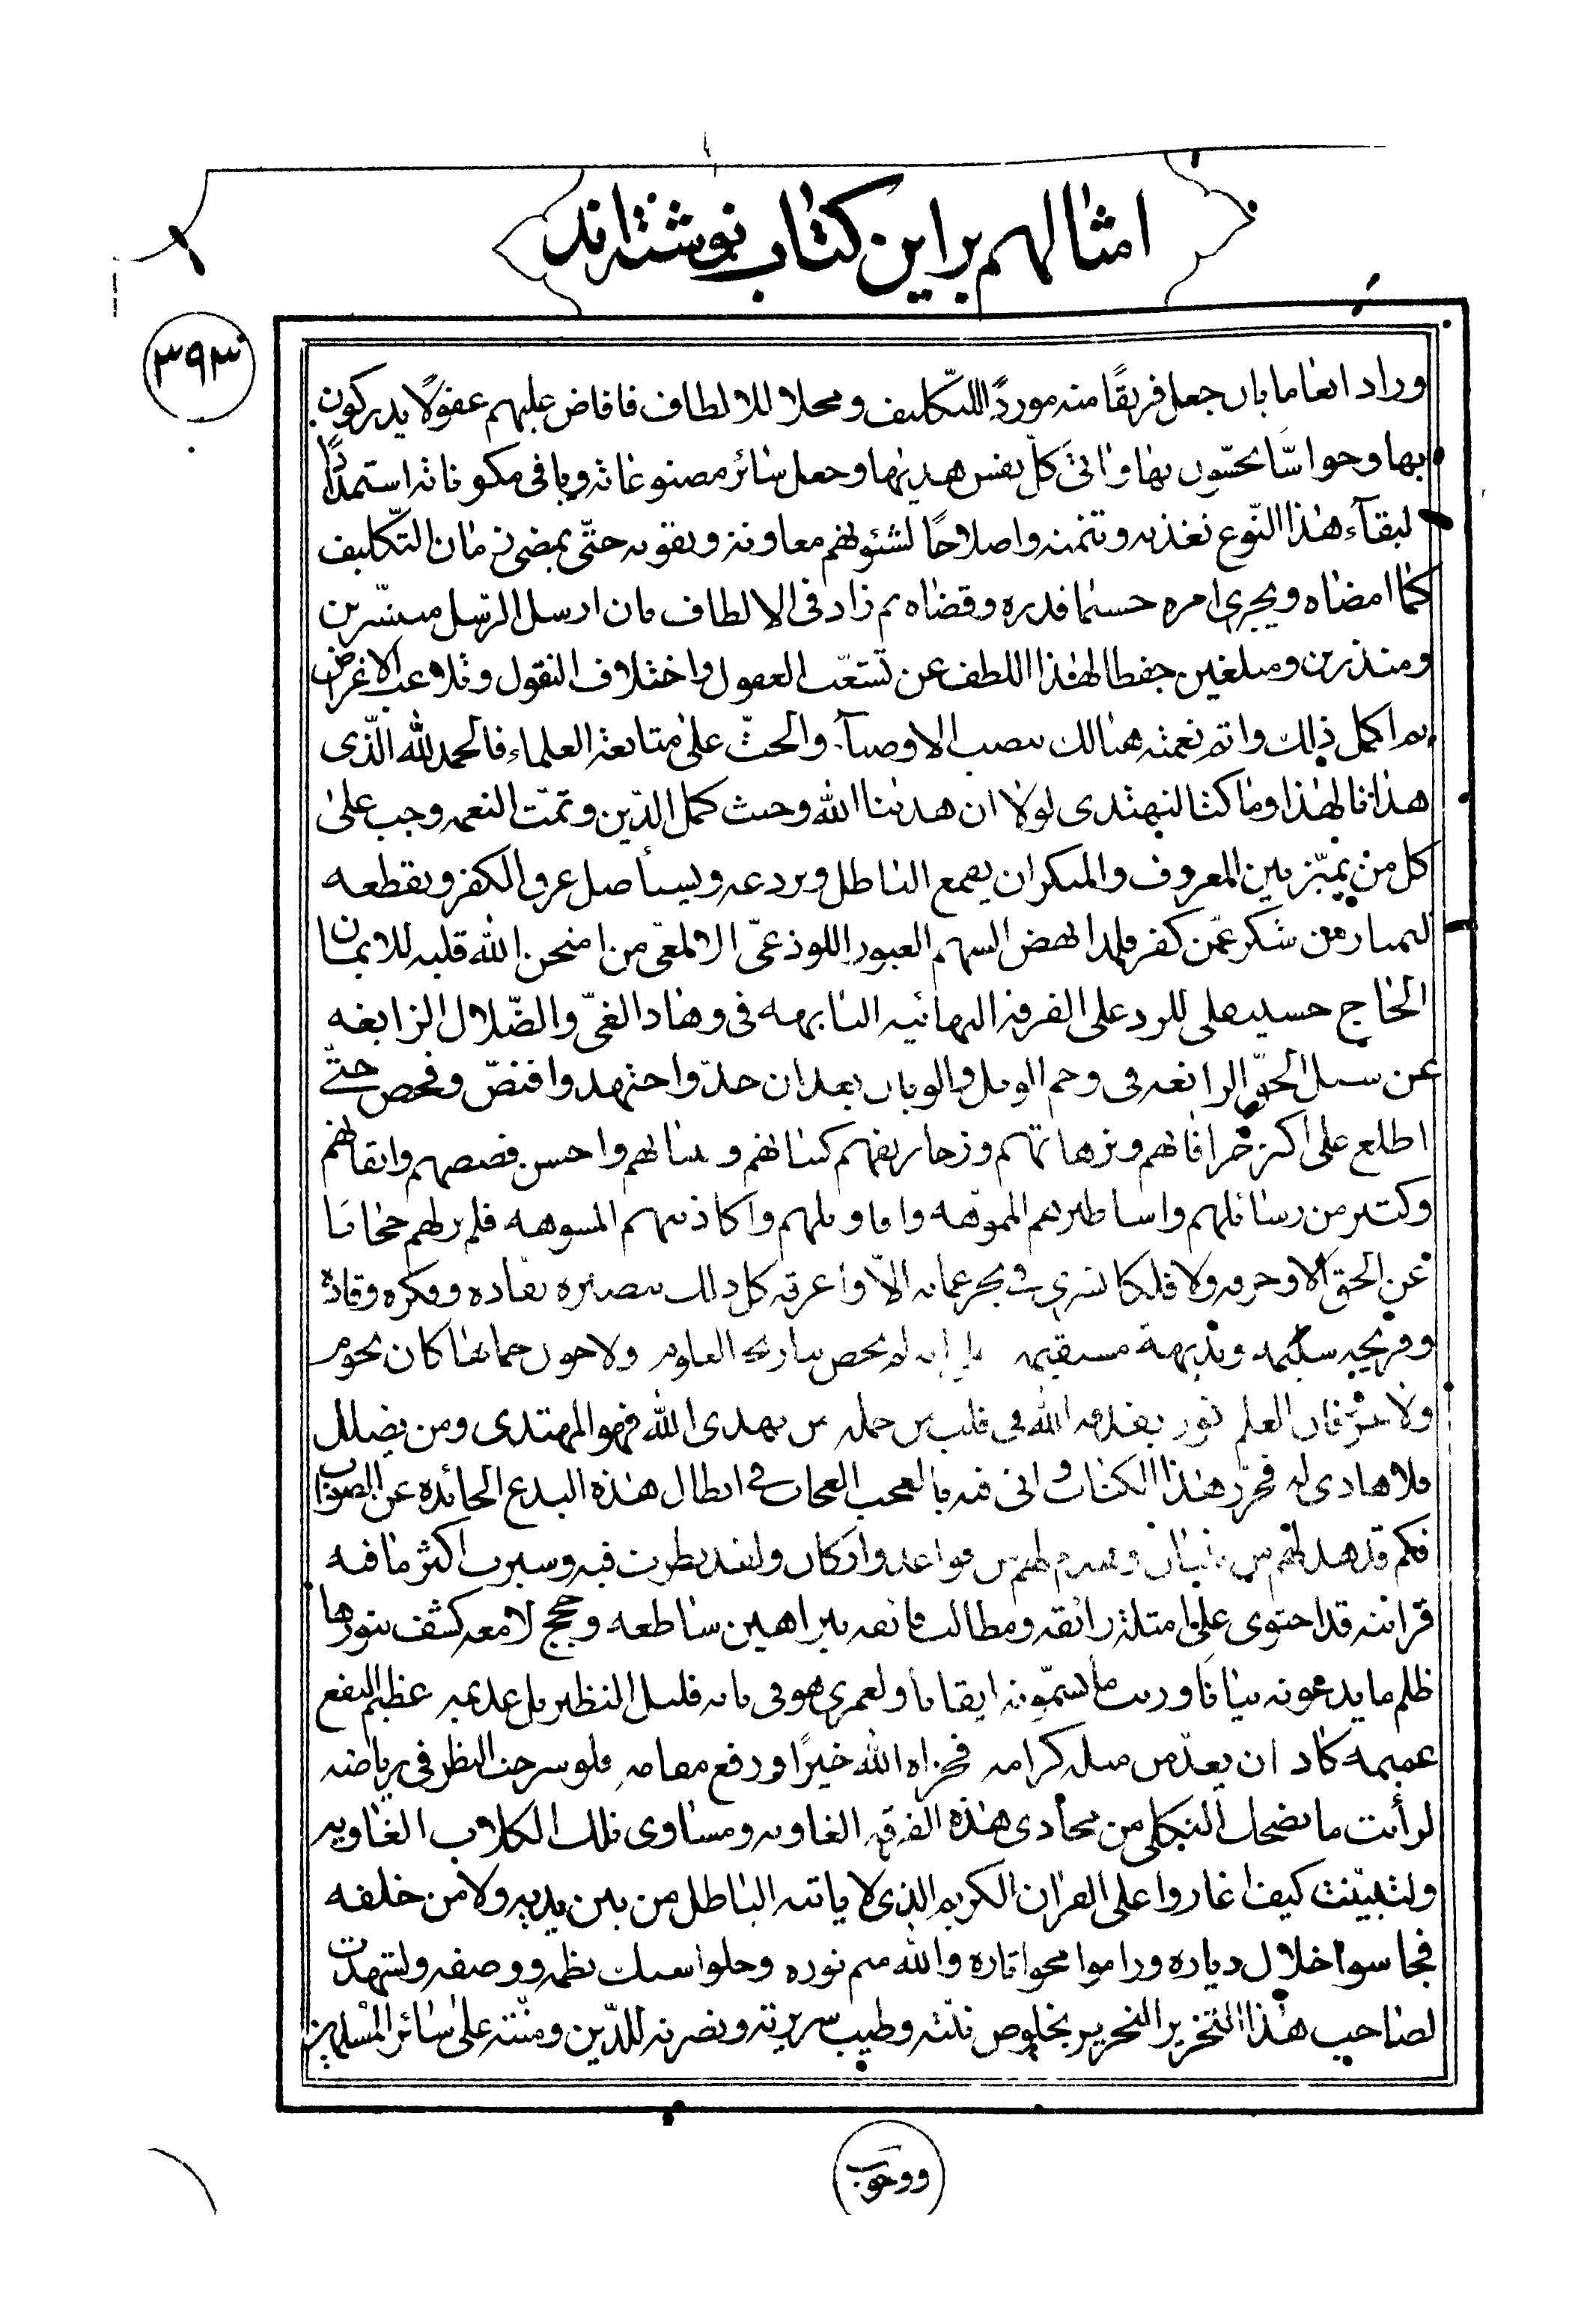 امثالهم بر این کتاب نوشته‌اند
٣٩٣
وزاد انعاما بان جعل فریقًا منه موردًا للتکلیف و محلا للالطاف فافاض علیهم عقولًا یدرکون
بها و حواسًّا یحسّون بها و اتیٰ کلّ نفس هدیٰها و جعل سائر مصنوعاته و باقی مکوناته استمدادًا
لبقآء هذا النّوع تغذیه و تنمیه و اصلاحًا لشئونهم معاونة و تقویه حتّی یمضی زمان التّکلیف
کما امضاه و یجری امره حسبما قدره و قضاه ثم زاد فی الالطاف بان ارسل الرّسل مبشّرین
و منذرین و مبلغین حفظا لهذا اللطف عن تشعّب العقول و اختلاف النقول و تلاعب الاغراض
ثم اکمل ذلک و اتم نعمته هنالک بنصب الاوصیآء و الحثّ علیٰ متابعة العلماء فالحمد لله الّذی
هدانا لهذا و ما کنا لنهتدی لولا ان هدینا الله و حیث کمل الدّین و تمّت النعمه وجب علیٰ
کل من یمیّز بین المعروف و المنکر ان یقمع الباطل و یردعه و یستأصل عرق الکفر و یقطعه
لیمتاز من شکر عمّن کفر فلهذا نهض الشهم الغیور اللوذعیّ الالمعّی من امتحن الله قلبه للایمان
الحاج حسینقلی للرد علی الفرقه البهائیه التایهه فی وهاد الغیّ و الضّلال الزایغه
عن سبیل الحقّ الراتعه فی وخم الوبیل و الوبال بعد ان جدّ و اجتهد و اقتنصّ و فحص حتّی
اطلع علی اکثر خرافاتهم و ترهاتهم و زخاریفهم کبیانهم و احسن قصصهم و ایقانهم
و کثیر من رسائلهم و اساطیرهم المموّهه و اقاویلهم و اکاذیبهم المشوهه فلم یر لهم جانبا
عن الحق الا وخرقه ولا فلکا تسری فی بحر عمایه الّا و اغرقه کل ذلک ببصیره نقاده و فکره وقاده
و قریحه سلیمه و بدیهة مستقیمه بل انه لم یخص تیار بحر العلوم ولا حول حماها کان یحوم
ولا غرو فان العلم نور یقذفه الله فی قلب من حمله من یهدی الله فهو المهتدی و من یضلل
فلا هادی له فحرّر هذا الکتاب و اتی فیه بالعجب العجاب فی ابطال هذه البدع الحائده عن الصواب
فکم قد هدّ لهم من بنیان و هدم لهم من قواعد و ارکان و لقد نظرت فیه و سبرت اکثر ما فیه
فرایته قد احتوی علیٰ امثلة رائقه و مطالب فائقه ببراهین ساطعه و حجج لامعه کشف بنورها
ظلم ما یدعونه بیانًا و ریب ما یسمّونه ایقانا و لعمری هو فی بابه قلیل النظیر بل عدیمه عظیم النفع
عمیمه کاد ان یعدّ من مثله کرامه فجزاه الله خیرًا و رفع مقامه فلو سرحت النظر فی ریاضه
لرأیت ما یضحک الثکلی من مخادی هذه الفرقه الغاویه و مساوی تلک الکلاب العاویه
و لتبیّنت کیف اغاروا علی القران الکریم الذی لا یاتیه الباطل من بین یدیه ولا من خلفه
فجاسوا خلال دیاره و راموا محو اثاره و الله متم نوره و حلوا سبک نظمه و وصفه و لشهدت
لصاحب هذا التحریر النحریر بخلوص نیّته و طیب سریرته و نصرته للدّین و منّته علیٰ سائر المسلمین
و وجوب